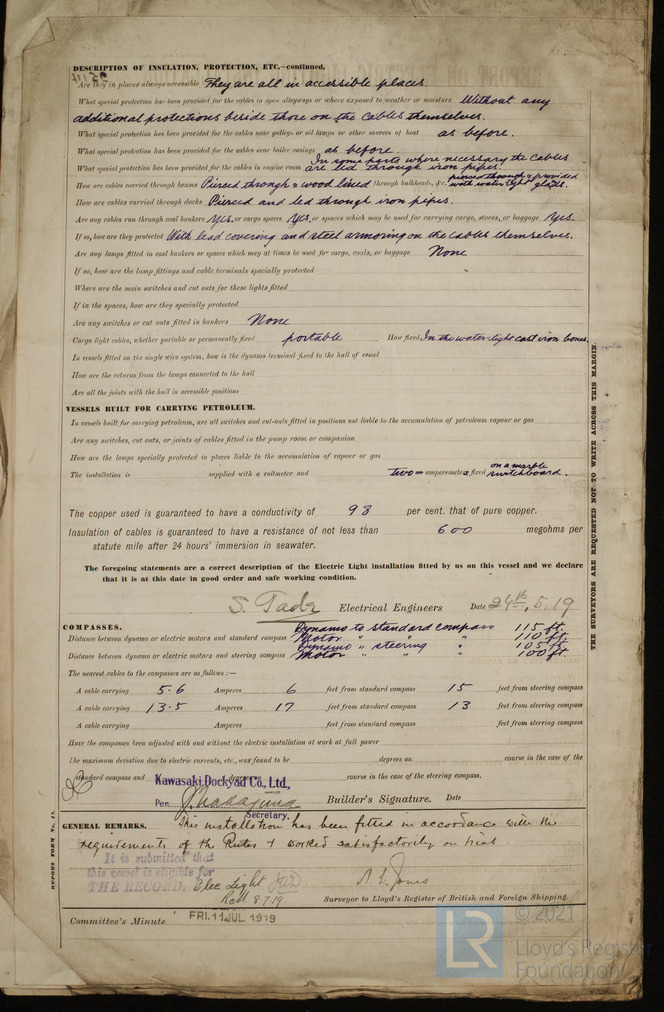 DESCRIPTION OF INSULATION, PROTECTION, ETC.—continued.
Are they in places always accessible They are all in accessible places.
What special protection has been provided for the cables in open alleyways or where exposed to weather or moisture Without any
additional protections beside those on the cables themselves.
What special protection has been provided for the cables near galleys or oil lamps or other sources of heat as before.
What special protection has been provided for the cables near boiler casings as before.
What special protection has been provided for the cables in engine room In some parts where necessary the cables are led through iron pipes.
How are cables carried through beams Pierced through & wood lined through bulkheads, &c. pierced through & provided with water tight glands.
How are cables carried through decks Pierced and led through iron pipes.
Are any cables run through coal bunkers Yes. or cargo spaces Yes. or spaces which may be used for carrying cargo, stores, or baggage Yes.
If so, how are they protected With lead covering and steel armoring on the cables themselves.
Are any lamps fitted in coal bunkers or spaces which may at times be used for cargo, coals, or baggage None
If so, how are the lamp fittings and cable terminals specially protected
Where are the main switches and cut outs for these lights fitted
If in the spaces, how are they specially protected
Are any switches or cut outs fitted in bunkers None
Cargo light cables, whether portable or permanently fixed portable How fixed In the water-tight cast iron boxes.
In vessels fitted on the single wire system, how is the dynamo terminal fixed to the hull of vessel
How are the returns from the lamps connected to the hull
Are all the joints with the hull in accessible positions
VESSELS BUILT FOR CARRYING PETROLEUM.
In vessels built for carrying petroleum, are all switches and cut-outs fitted in positions not liable to the accumulation of petroleum vapour or gas
Are any switches, cut outs, or joints of cables fitted in the pump room or companion
How are the lamps specially protected in places liable to the accumulation of vapour or gas
The installation is supplied with a voltmeter and two amperemeters fixed on a marble switchboard.
The copper used is guaranteed to have a conductivity of 98 per cent. that of pure copper.
Insulation of cables is guaranteed to have a resistance of not less than 600 megohms per
statute mile after 24 hours' immersion in seawater.
The foregoing statements are a correct description of the Electric Light installation fitted by us on this vessel and we declare
that it is at this date in good order and safe working condition.
S. Tada Electrical Engineers Date 24th, 5.19
COMPASSES.
Distance between dynamo or electric motors and standard compass Dynamo to standard compass 115 ft.
Motor " " " 110 ft.
Distance between dynamo or electric motors and steering compass Dynamo " steering " 105 ft.
Motor " " " 100 ft.
The nearest cables to the compasses are as follows:—
A cable carrying 5.6 Amperes 6 feet from standard compass 15 feet from steering compass
A cable carrying 13.5 Amperes 17 feet from standard compass 13 feet from steering compass
A cable carrying Amperes feet from standard compass feet from steering compass
Have the compasses been adjusted with and without the electric installation at work at full power
The maximum deviation due to electric currents, etc., was found to be degrees on course in the case of the
standard compass and degrees on course in the case of the steering compass.
Kawasaki Dockyard Co., Ltd.,
Per Builder's Signature. Date
Secretary.
GENERAL REMARKS. This installation has been fitted in accordance with the
requirements of the Rules & worked satisfactorily on trial.
It is submitted that
this vessel is eligible for
THE RECORD. Elec Light
Surveyor to Lloyd's Register of British and Foreign Shipping.
Committee's Minute FRI. 11 JUL 1919
THE SURVEYORS ARE REQUESTED NOT TO WRITE ACROSS THIS MARGIN.
LR
© 2021
Lloyd's Register
Foundation